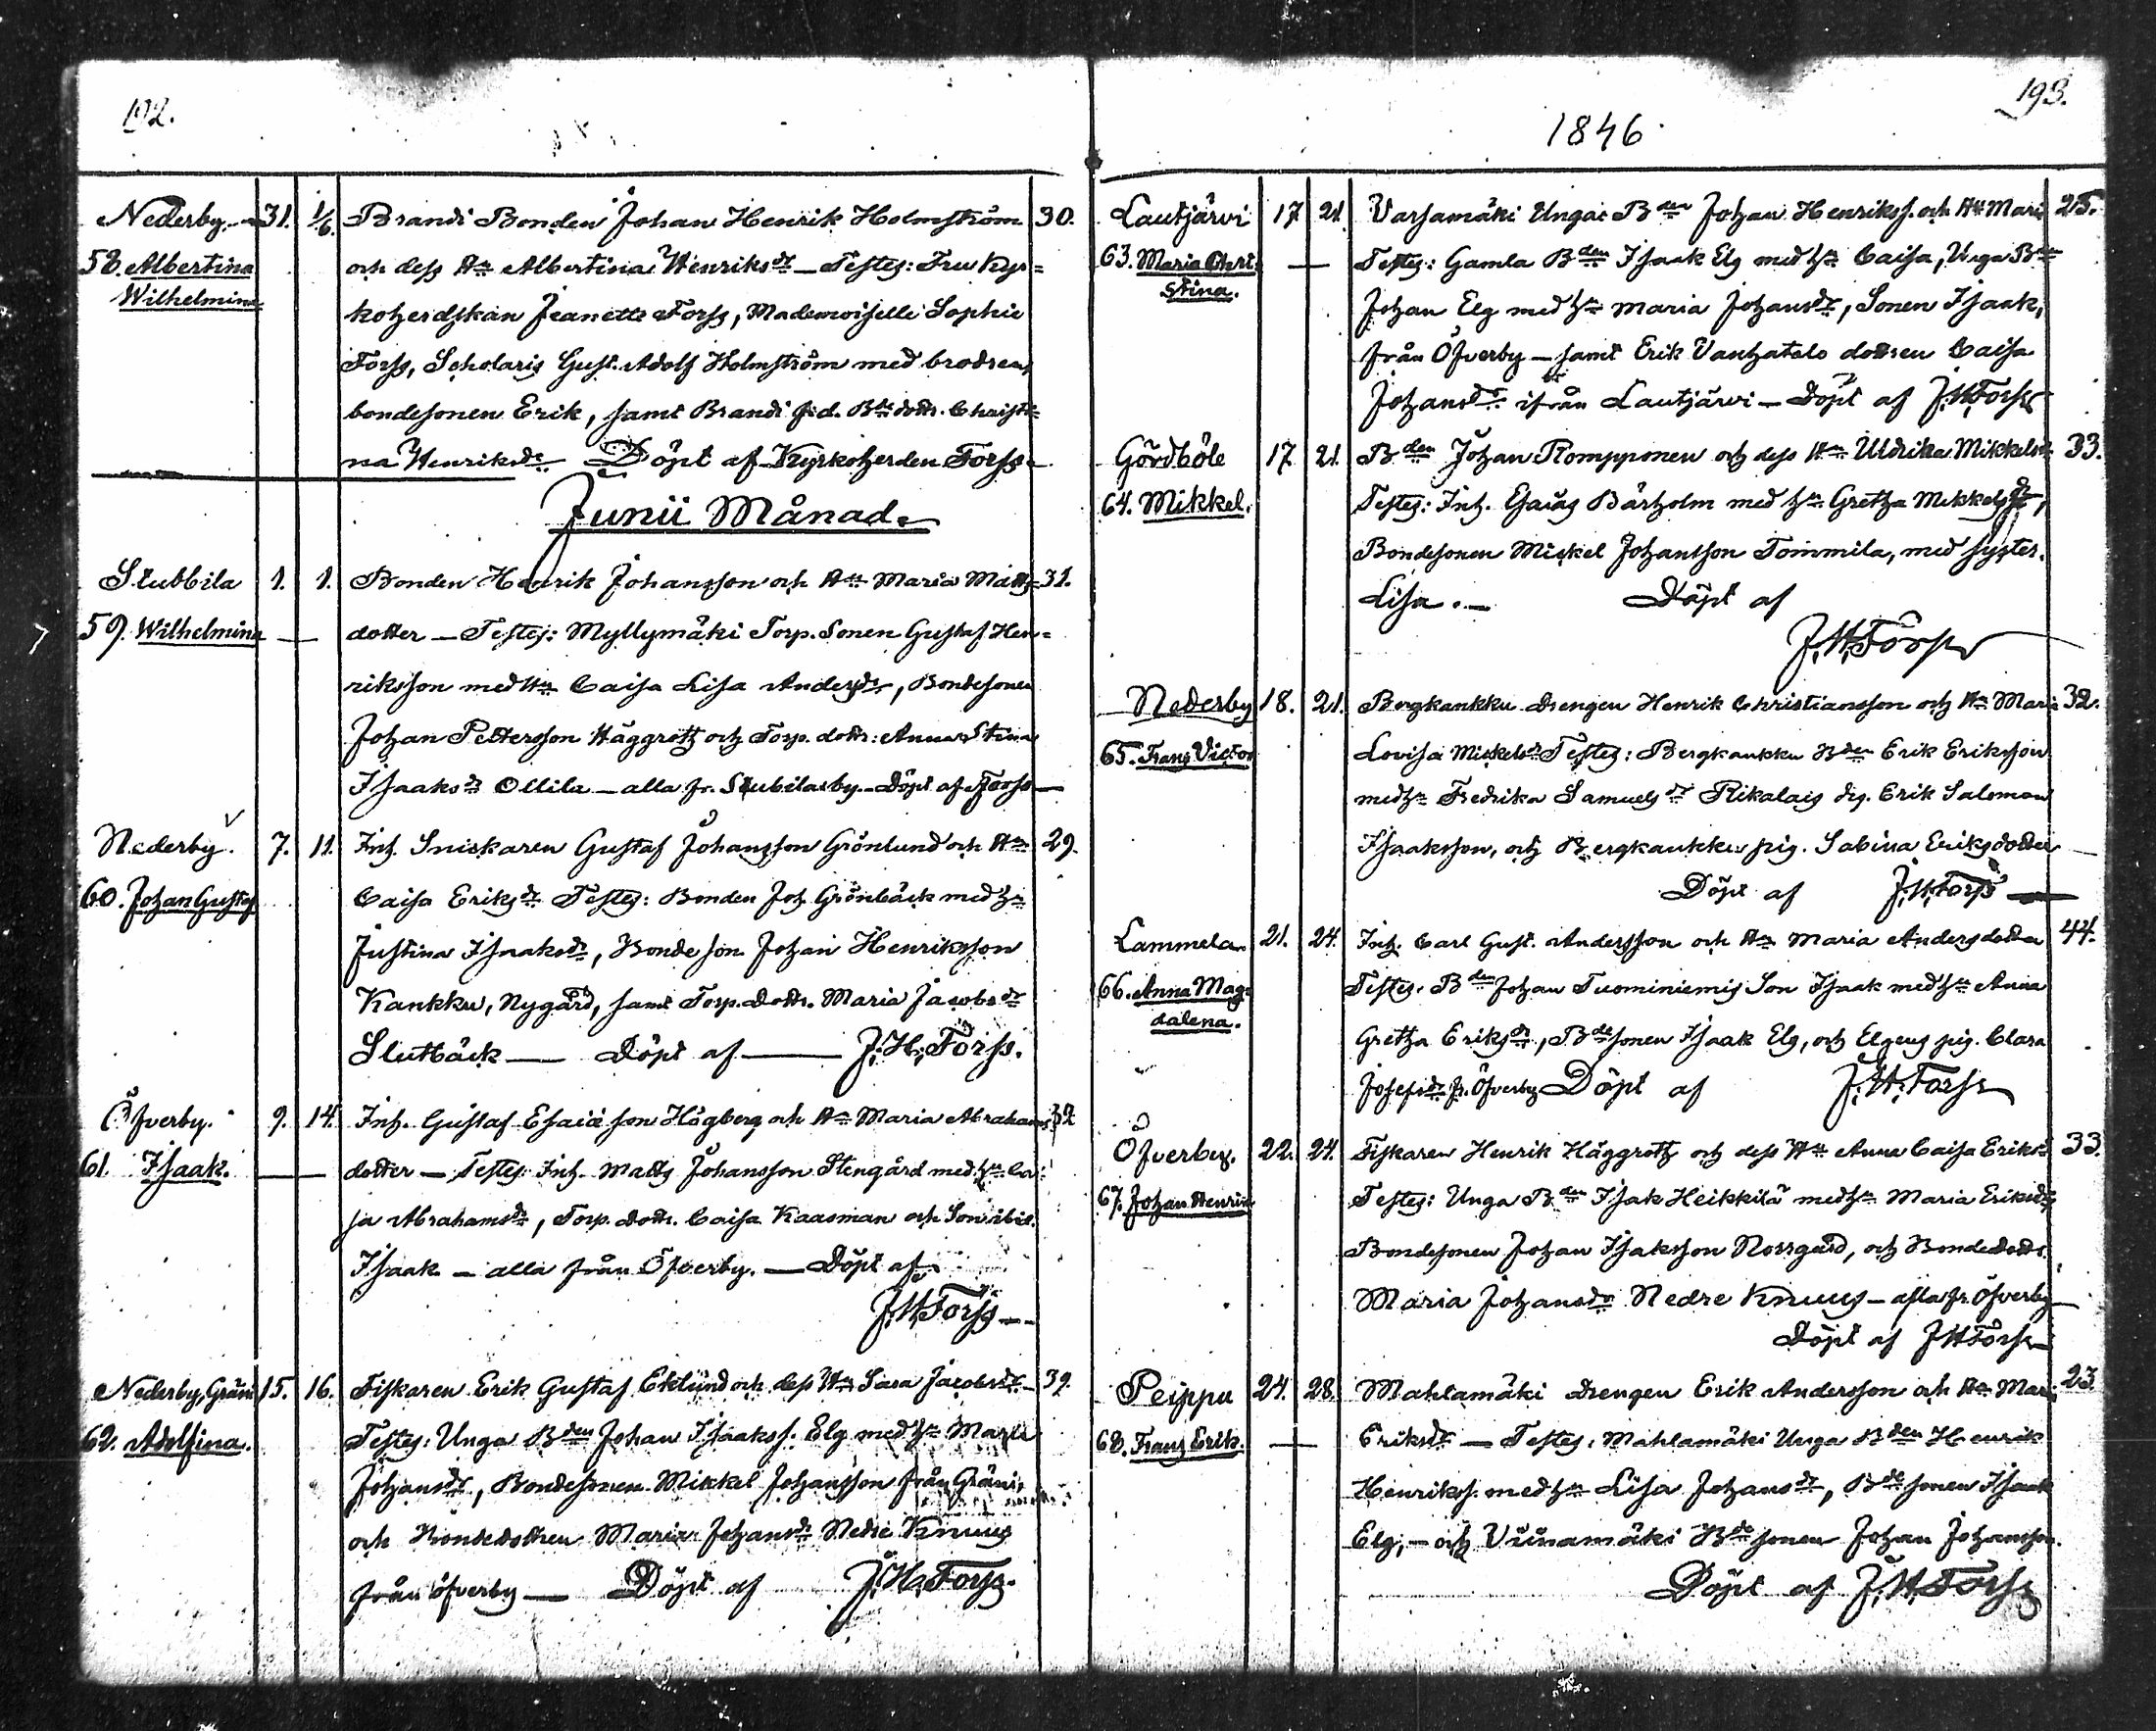 192.
Nederby. 31. 1/6. Brandi Bonden Johan Henrik Holmström 30.
58. Albertina och dess H:u Albertina Henriksd:r — Testes: Fru Kyr=
Wilhelmina
koherdskan Jeanette Forss, Mademoiselle Sophie
Forss, Scholaris Gust. Adolf Holmström med brodren,
bondesonen Erik, samt Brandi f.d. B:de dottr. Christi=
na Henriksd:r Döpt af Kyrkoherden Forss
Junii Månad
Stubbila 1. 1. Bonden Henrik Johansson och H:u Maria Matts= 31.
59. Wilhelmina — dotter — Testes: Myllymäki Torp. Sonen Gustaf Hen=
riksson med H:u Caisa Lisa Andersd:r, Bondesonen
Johan Pettersson Häggroth och Torp. dottr: Anna Stina
Isaaksd:r Ollila — alla fr. Stubilaby — Döpt af Forss —
Nederby. 7. 11. Inh. Snickaren Gustaf Johansson Grönlund och H:u 29.
60. Johan Gustaf Caisa Eriksd:r Testes: Bonden Joh Grönbäck med h:u
Justina Isaaksd:r, Bonde son Johan Henriksson
Kankku, Nygård, samt Torp. Dottr. Maria Jacobsd:r
Slutbäck — Döpt af — J. H. Forss.
Öfverby. 9. 14. Inh. Gustaf Esaiæ son Högberg och H:u Maria Abrahams 32
61. Isaak. — dotter — Testes: Inh. Matts Johansson Stengård med h:u Cai
sa Abrahamsd:r, Torp. Dottr. Caisa Kaasman och Son ibid.
Isaak — alla från Öfverby. — Döpt af
J. H. Forss —
Nederby, Gräni 15. 16. Fiskaren Erik Gustaf Eklund och dess H:u Sara Jacobsd:r 39.
62. Adolfina. Testes: Unga B:den Johan Isaakss. Elg med h:u Maria
Johansd:r, Bondesonen Mikkel Johansson från Gräni,
och Bondedottren Maria Johansd:r Nedre Knuus
från Öfverby — Döpt af J. H. Forss.
193.
1846
Lautjärvi 17 21. Varsamäki Ungar B:den Johan Henrikss. och H:u Maria 25.
63. Maria Chri — Testes: Gamla B:den Isaak Elg med h:u Caisa, Unga B:den
stina.
Johan Elg med h:u Maria Johansd:r, Sonen Isaak,
från Öfverby — samt Erik Vanhatalo dottren Caisa
Johansd:r ifrån Lautjärvi — Döpt af J. H. Forss
Gördböle 17 21. B:den Johan Rompponen och dess H:u Uldrika Mikkelsd:r 33.
64. Mikkel. Testes: Inh. Esaias Bärholm med h:u Gretha Mikkelsd:r,
Bondesonen Mickel Johansson Tommila, med syster.
Lisa. — Döpt af
J. H. Forss
Nederby 18. 21. Bergkankku drengen Henrik Christiansson och H:u Maria 32.
65. Frans Victor Lovisa Mickelsd:r Testes: Bergkankku B:den Erik Eriksson
med h:u Fredrika Samuelsd:r Rikalais dg. Erik Salomon
Isaaksson, och Bergkankku pig. Sabina Eriksdotter
Döpt af J. H. Forss —
Lammela 21. 24. Inh. Carl Gust. Andersson och H:u Maria Andersdotter 44.
66. Anna Mag= Testes. B:den Johan Tuominiemis Son Isaak med h:u Anna
dalena.
Gretha Eriksd:r, B:de sonen Isaak Elg, och Elgens pig. Clara
Josefsd:r fr. Öfverby Döpt af J. H. Forss
Öfverby. 22. 24. Fiskaren Henrik Häggroth och dess H:u Anna Caisa Eriksd:r 33.
67. Johan Henric Testes: Unga B:den Isak Heikkilä med h:u Maria Eriksd:r
Bondesonen Johan Isaksson Norrgård, och Bondedottr.
Maria Johansd:r Nedre Knuus — alla fr. Öfverby —
Döpt af J. H. Forss
Peippu 24. 28. Mahlamäki drengen Erik Andersson och H:u Maria 23.
68. Frans Erik. — Eriksd:r — Testes: Mahlamäki Unga B:den Henrik
Henrikss. med h:u Lisa Johansd:r, B:de sonen Isaak
Elg, — och Viinamäki B:de sonen Johan Johansson.
Döpt af J. H. Forss